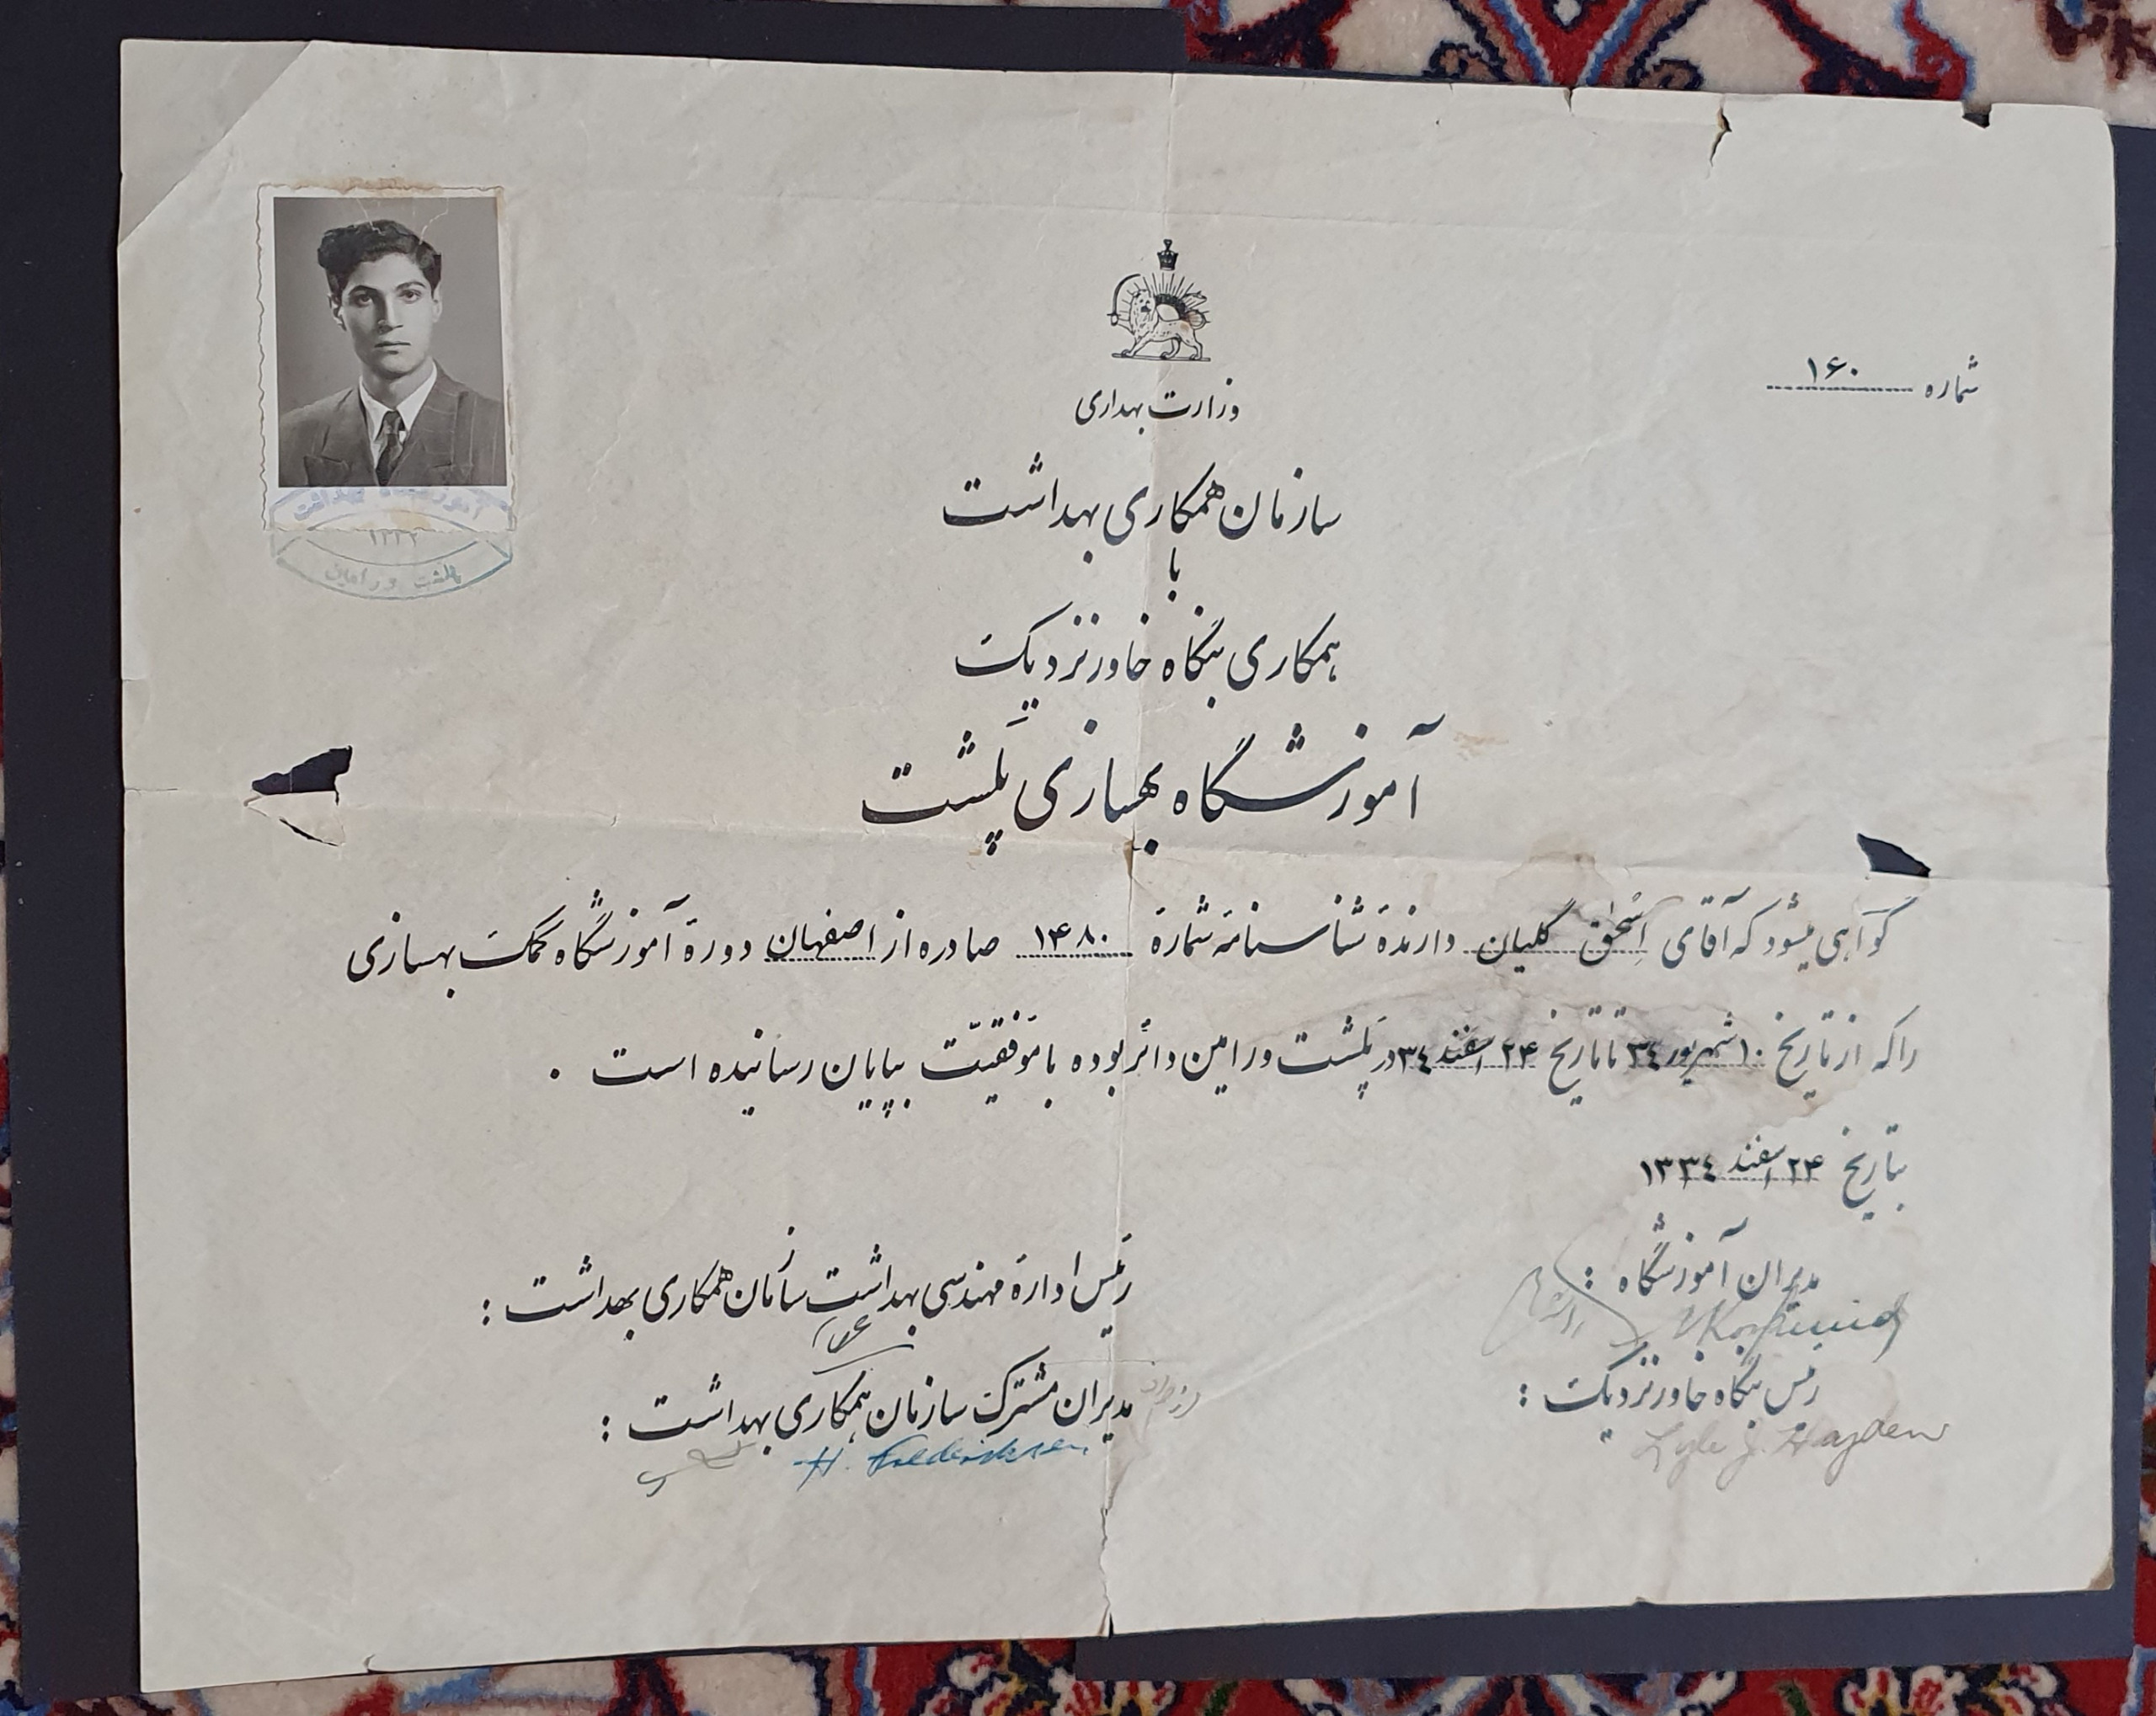 شماره ۱۶۰
وزارت بهداری
سازمان همکاری بهداشت
با
همکاری بنگاه خاور نزدیک
آموزشگاه بهسازی پَلَشت
گواهی میشود که آقای اسْحٰق گلیان دارندهٔ شناسنامه شمارهٔ ۱۴۸۰ صادره از اصفهان دورهٔ آموزشگاه کمک بهسازی
را که از تاریخ ۱۰ شهریور ۳٤ تا تاریخ ۲۴ اسفند ۳٤ در پَلَشت ورامین دائر بوده با موَفقیّت بپایان رسانیده است .
بتاریخ ۲۴ اسفند ۱۳۳٤
مدیران آموزشگاه :
رئیس بنگاه خاور نزدیک :
Lyle J. Hayden
رئیس ادارهٔ مهندسی بهداشت سازمان همکاری بهداشت :
مدیران مشترک سازمان همکاری بهداشت :
H. Frederiksen
آموزشگاه بهداشت
پلشت ورامین